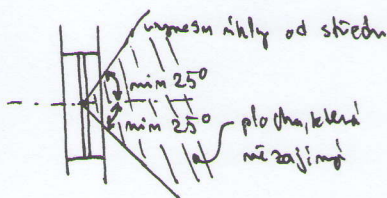 vynesu úhly od středu
min 25°
min 25°
plocha, která
mě zajímá